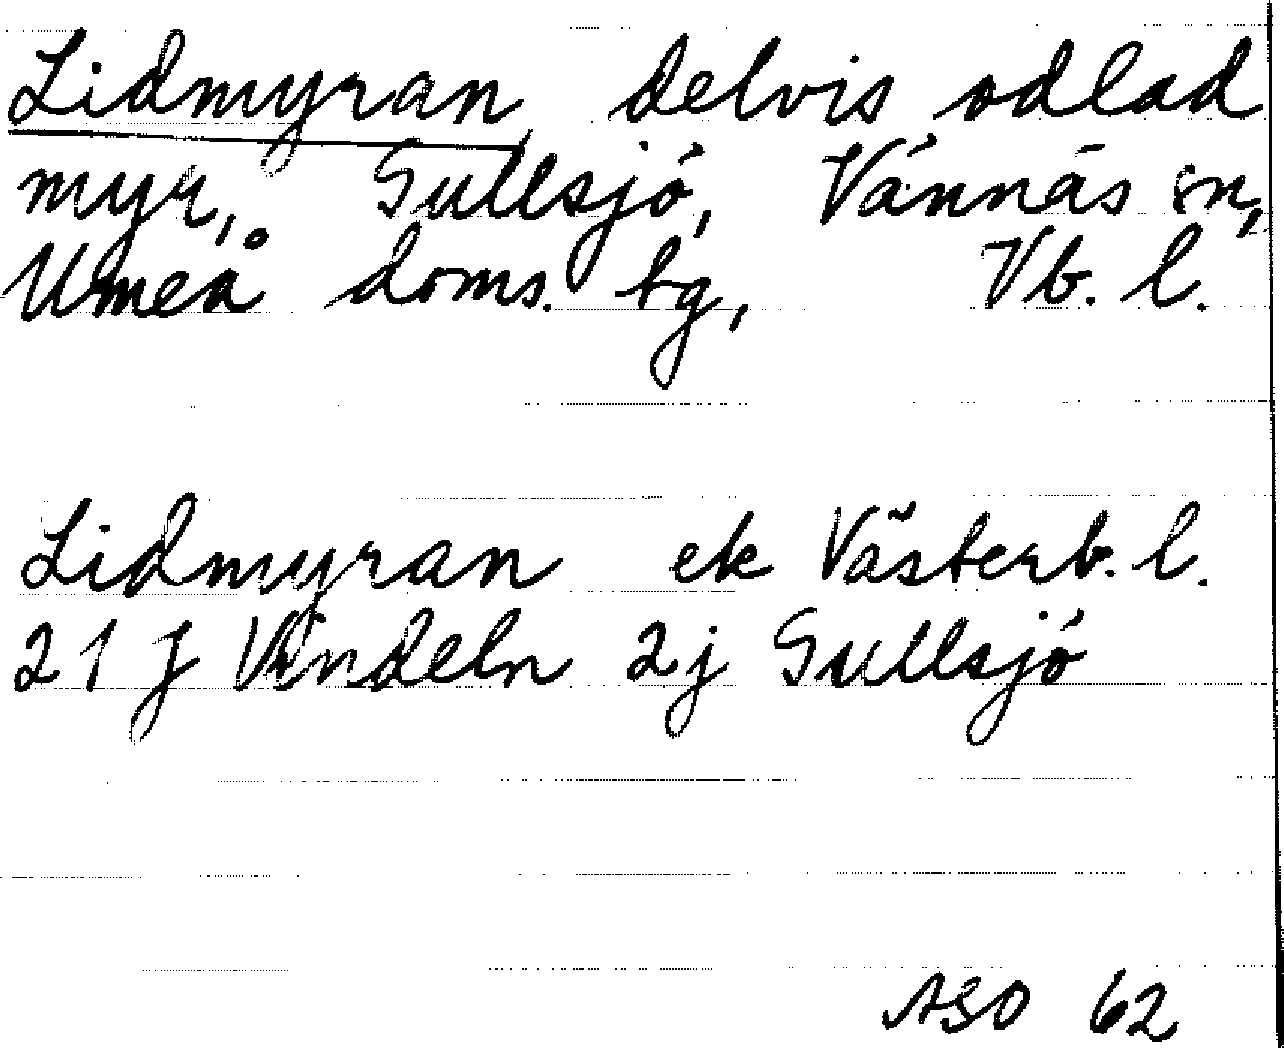 Lidmyran, delvis odlad
myr, Gullsjö, Vännäs sn,
Umeå doms. tg, Vb. l.
Lidmyran ek Västerb. l.
21 J Vindeln 2j Gullsjö
ASO 62